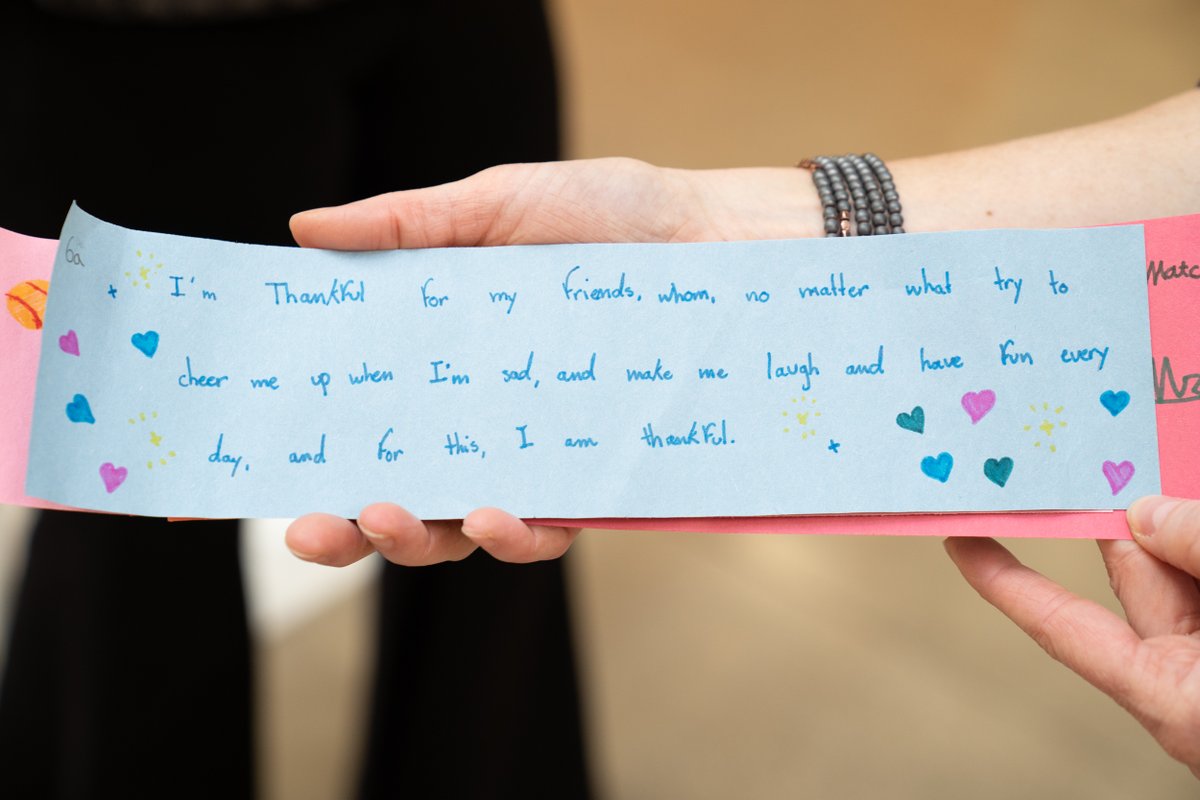 6a
I'm Thankful for my friends, whom, no matter what try to
cheer me up when I'm sad, and make me laugh and have fun every
day, and for this, I am thankful.
Matc